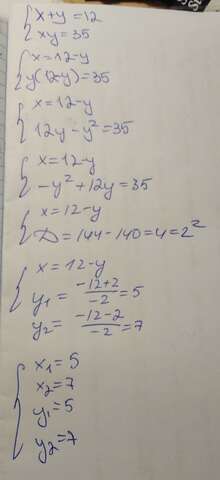 {x+y=12
xy=35
{x=12-y
y(12-y)=35
{x=12-y
12y-y²=35
{x=12-y
-y²+12y=35
{x=12-y
D=144-140=4=2²
{x=12-y
y₁=(-12+2)/(-2)=5
y₂=(-12-2)/(-2)=7
{x₁=5
x₂=7
y₁=5
y₂=7